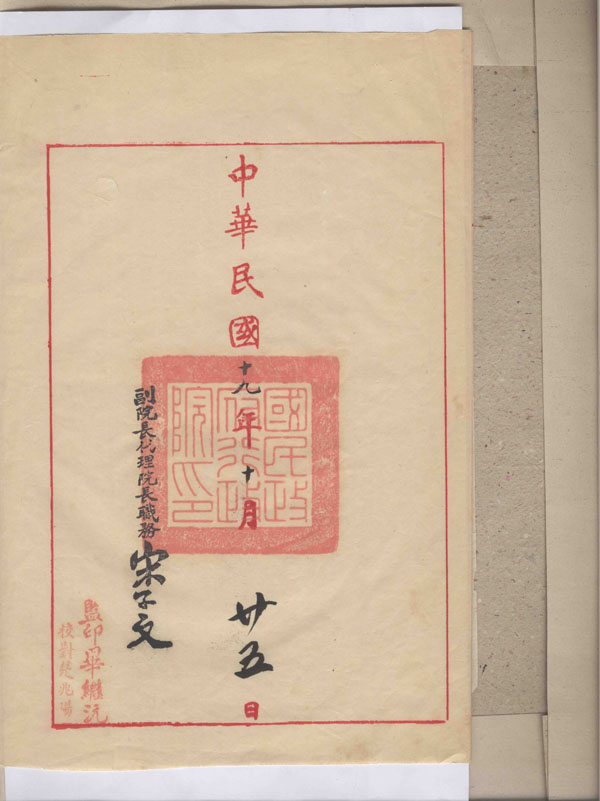 中華民國十九年十月廿五日
國民政府行政院印
副院長代理院長職務宋子文
監印畢繼沅
校對